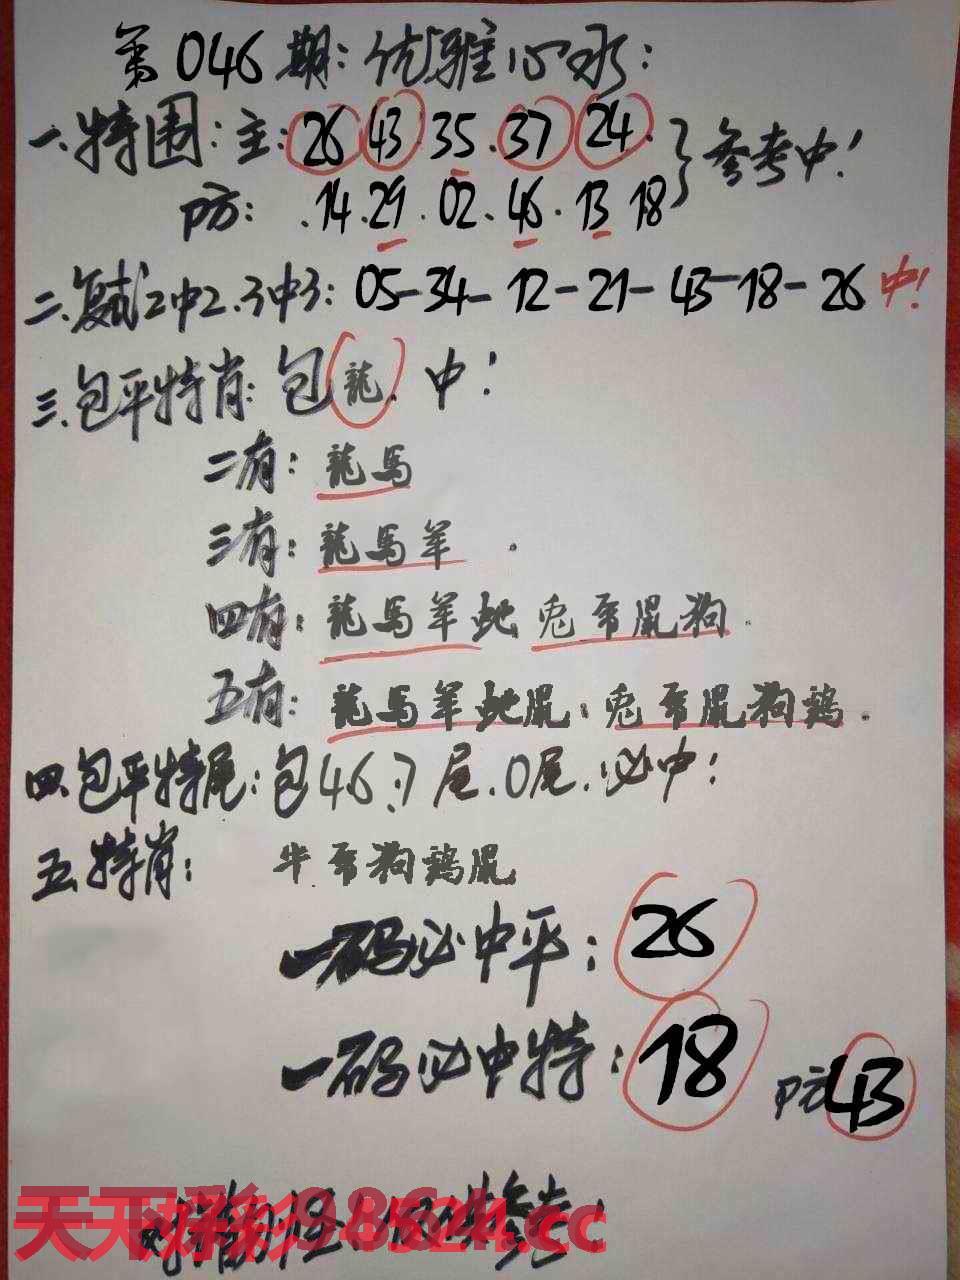 第046期：优雅心水：
一.特围：主：26 43 35.37 24. 参考中！
防：.14.29.02.46.13 18
二.复试2中2.3中3：05-34-12-21-43-18-26 中！
三.包平特肖：包龍.中！
二有：龍馬
三有：龍馬羊.
四有：龍馬羊蛇 兔帝鼠狗.
五有：龍馬羊蛇鼠：兔帝鼠狗鷄.
四.包平特尾：包46.7尾.0尾.必中！
五.特肖：牛帝狗鷄鼠
一码必中平：26
一码必中特：18 防43
天下彩98524.cc